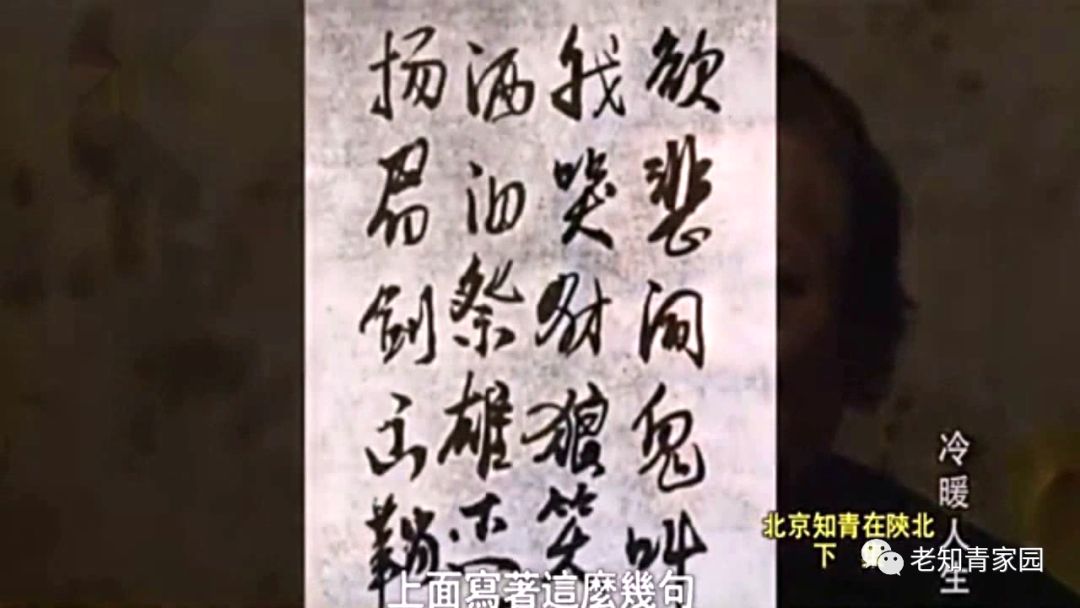 欲悲闻鬼叫
我哭豺狼笑
洒泪祭雄杰
扬眉剑出鞘
冷暖人生
北京知青在陝北
下
老知青家园
上面寫著這麼幾句